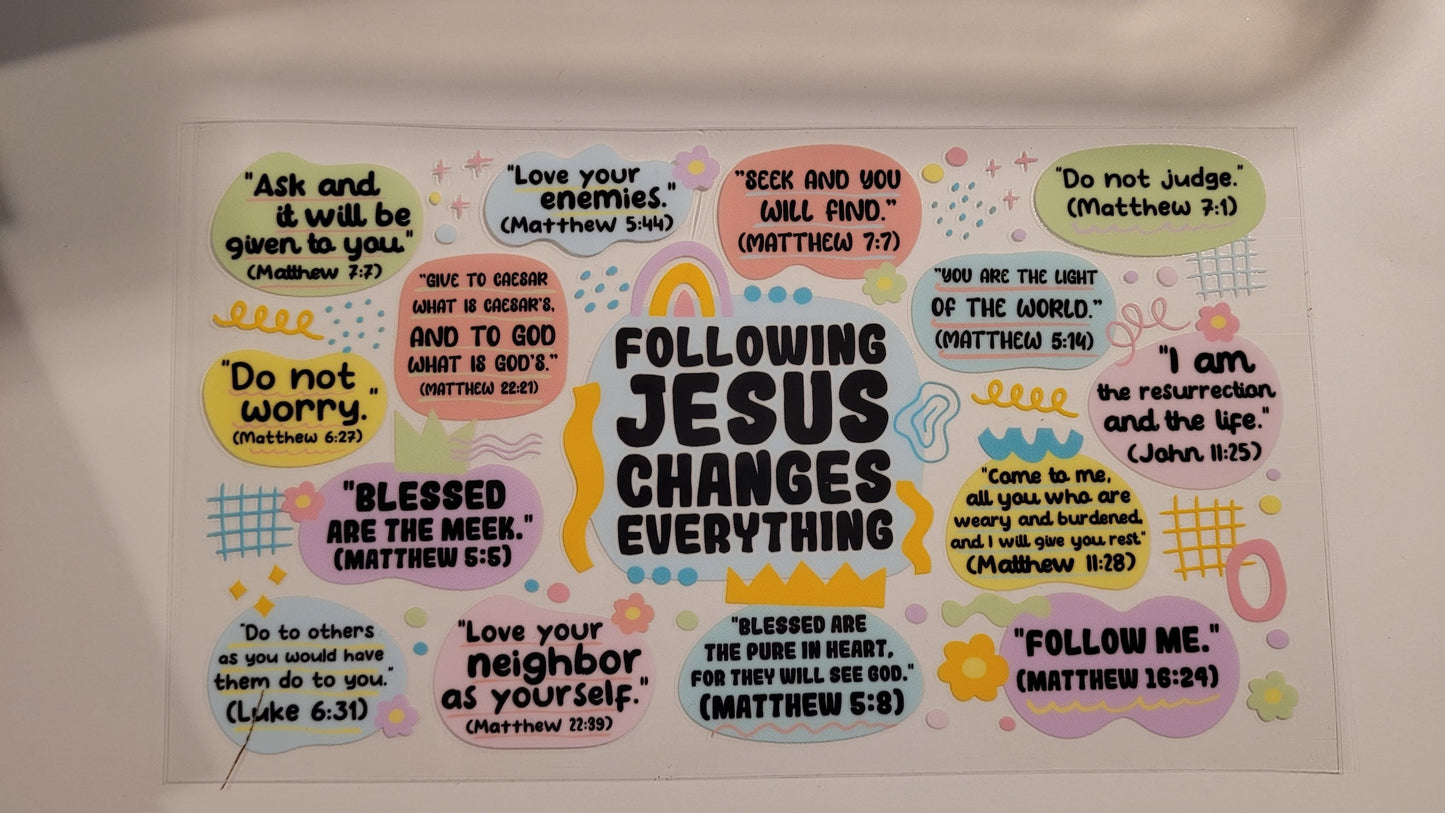 "Ask and
it will be
given to you"
(Matthew 7:7)
"Love your
enemies."
(Matthew 5:44)
"SEEK AND YOU
WILL FIND."
(MATTHEW 7:7)
"Do not judge."
(Matthew 7:1)
"GIVE TO CAESAR
WHAT IS CAESAR'S,
AND TO GOD
WHAT IS GOD'S."
(MATTHEW 22:21)
"YOU ARE THE LIGHT
OF THE WORLD."
(MATTHEW 5:14)
"Do not
worry."
(Matthew 6:27)
FOLLOWING
JESUS
CHANGES
EVERYTHING
"I am
the resurrection
and the life."
(John 11:25)
"BLESSED
ARE THE MEEK."
(MATTHEW 5:5)
"Come to me,
all you who are
weary and burdened,
and I will give you rest"
(Matthew 11:28)
"Do to others
as you would have
them do to you."
(Luke 6:31)
"Love your
neighbor
as yourself."
(Matthew 22:39)
"BLESSED ARE
THE PURE IN HEART,
FOR THEY WILL SEE GOD."
(MATTHEW 5:8)
"FOLLOW ME."
(MATTHEW 16:24)